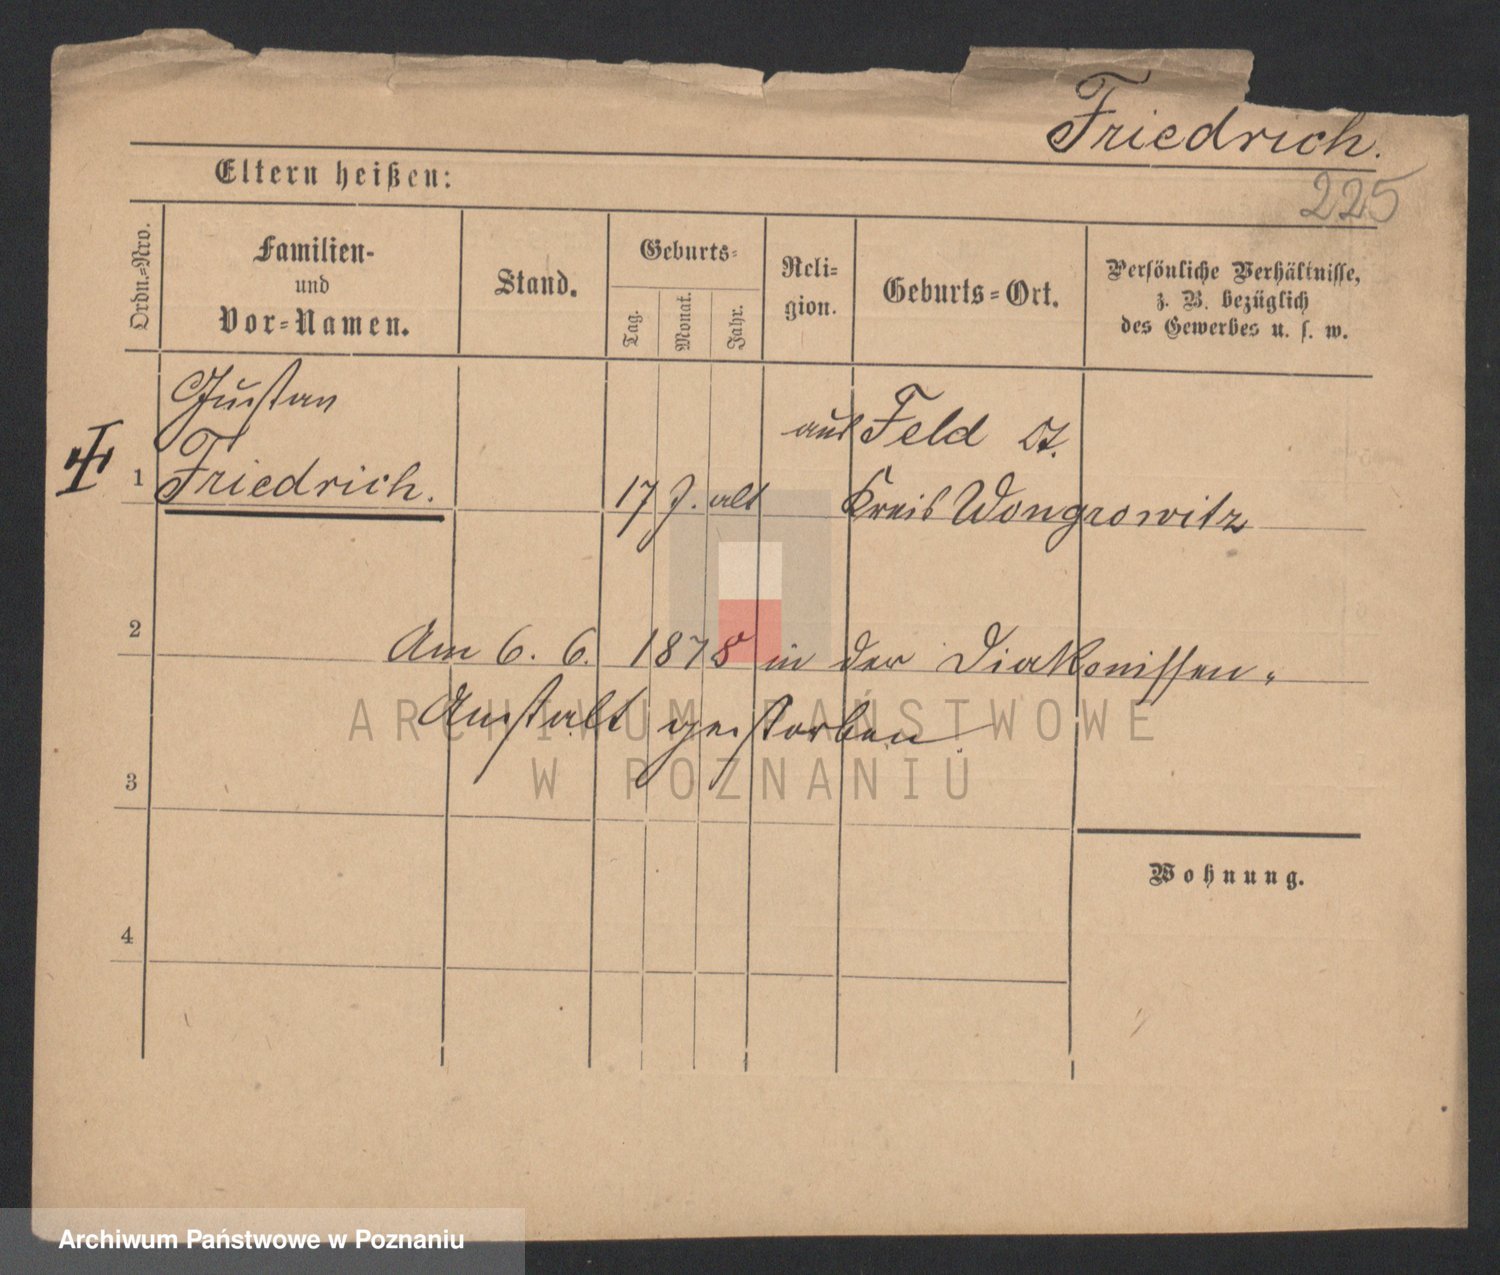 Friedrich.
225
Eltern heißen:
Ordn.=Nro.
Familien-
und
Vor=Namen.
Stand.
Geburts=
Tag.
Monat.
Jahr.
Reli=
gion.
Geburts=Ort.
Persönliche Verhältnisse,
z. B. bezüglich
des Gewerbes u. s. w.
Gustav
aus Feld
1 Friedrich. 17 J. alt Kreis Wongrowitz
2
Am 6. 6. 1878 in der Diakonissen-
Anstalt gestorben.
ARCHIWUM PAŃSTWOWE
W POZNANIU
3
Wohnung.
4
Archiwum Państwowe w Poznaniu